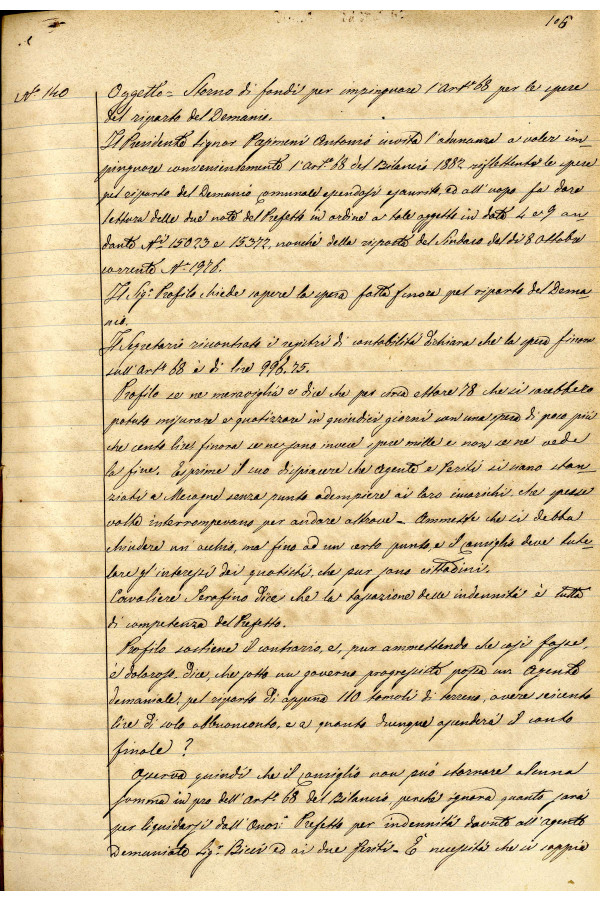 106
N.° 140
Oggetto = Storno di fondi per impinguare l'Art.° 68 per le spese
del riparto del Demanio.
Il Presidente Signor Antonio invita l'adunanza a voler im-
pinguare convenientemente l'Art.° 68 del Bilancio 1882 riflettente le spese
pel riparto del Demanio Comunale essendosi esaurito, ed all'uopo fa dare
lettura delle due note del Prefetto in ordine a tale oggetto in data 4 e 9 an-
dante N.i 15023 e 15372, nonché della risposta del Sindaco del dì 8 Ottobre
corrente N.° 1976.
Il Sig.r Profilo chiede sapere la spesa fatta finora pel riparto del Dema-
nio.
Il Segretario riscontrati i registri di contabilità dichiara che la spesa finora
sull'Art.° 68 è di lire 996.75.
Profilo se ne meraviglia e dice che per circa ettare 78 che si sarebbero
potute misurare e quotizzare in quindici giorni con una spesa di poco più
che cento lire, finora se ne sono invece spese mille e non se ne vede
la fine. Esprime il suo dispiacere che Agente e Periti si siano stan-
ziati a Mesagne senza punto adempiere ai loro incarichi, che spesse
volte interrompevano per andare altrove - Ammette che si debba
chiudere un'occhio, ma fino ad un certo punto, e il Consiglio deve tute-
lare gl'interessi dei quotisti, che pur sono cittadini.
Cavaliere Serafino dice che la tassazione delle indennità è tutta
di competenza del Prefetto.
Profilo sostiene il contrario, e, pur ammettendo che così fosse,
è doloroso, dice, che sotto un governo progressista possa un Agente
demaniale, pel riparto di appena 110 tomoli di terreno, avere seicento
lire di solo abbuonconto, e a quanto dunque ascenderà il conto
finale?
Osserva quindi che il Consiglio non può stornare alcuna
somma in pro dell'Art.° 68 del Bilancio, perché ignora quanto sarà
per liquidarsi dall'Onor. Prefetto per indennità dovute all'agente
Demaniale Sig.r ed ai due Periti - È necessità che si sappia